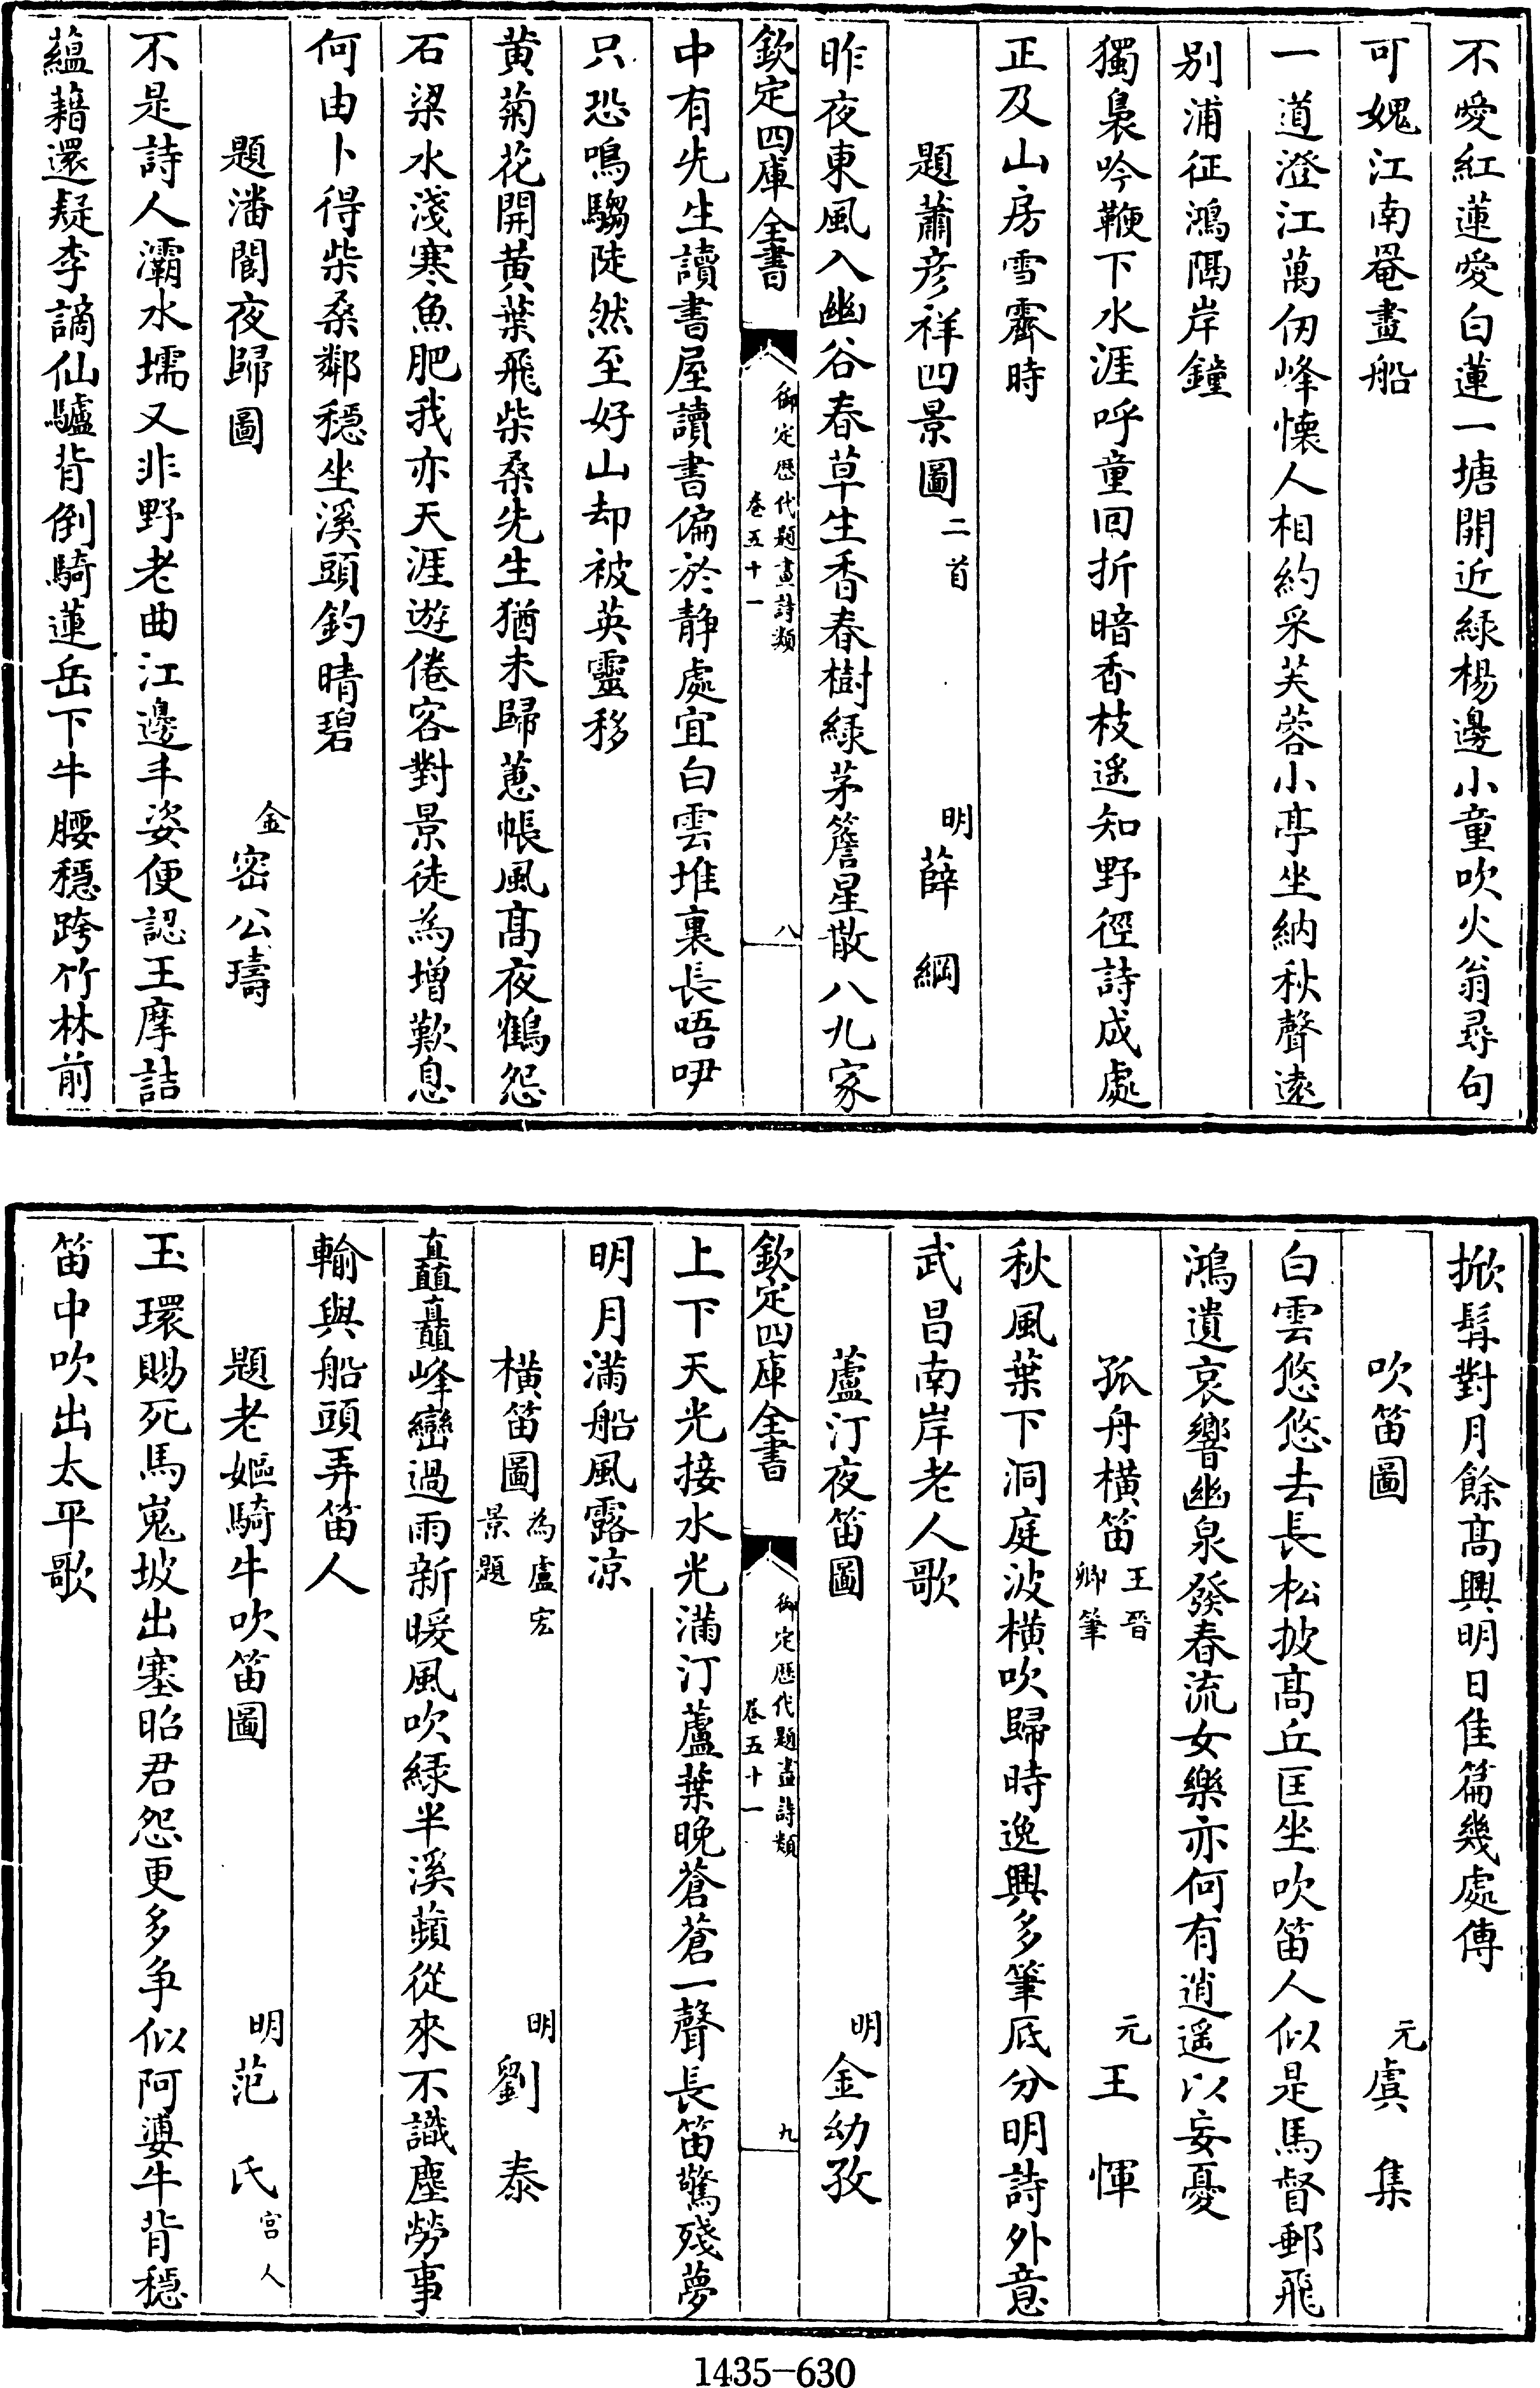 不愛紅蓮愛白蓮一塘開近綠楊邊小童吹火翁尋句
可媿江南罨畫船
一道澄江萬仞峰懐人相約采芙蓉小亭坐納秋聲逺
别浦征鴻隔岸鐘
獨裊吟鞭下水涯呼童回折暗香枝遥知野徑詩成處
正及山房雪霽時
題蕭彦祥四景圖二首 明薛綱
昨夜東風入幽谷春草生香春樹緑茅簷星散八九家
欽定四庫全書 御定歴代題畫詩類 卷五十一 八
中有先生讀書屋讀書偏於静處宜白雲堆裏長唔咿
只恐鳴騶陡然至好山却被英靈移
黄菊花開黄葉飛柴桑先生猶未歸蕙帳風髙夜鶴怨
石梁水淺寒魚肥我亦天涯遊倦客對景徒為增歎息
何由卜得柴桑鄰穏坐溪頭釣晴碧
題潘閬夜歸圖 金密公璹
不是詩人灞水壖又非野老曲江邊丰姿便認王摩詰
蘊藉還疑李謫仙驢背倒騎蓮岳下牛腰穏跨竹林前
掀髯對月餘髙興明日佳篇幾處傳
吹笛圖 元虞集
白雲悠悠去長松披髙丘匡坐吹笛人似是馬督郵飛
鴻遺哀響幽泉發春流女樂亦何有逍遥以妄憂
孤舟横笛王晉卿筆 元王惲
秋風葉下洞庭波横吹歸時逸興多筆底分明詩外意
武昌南岸老人歌
蘆汀夜笛圖 明金幼孜
欽定四庫全書 御定歴代題畫詩類 卷五十一 九
上下天光接水光滿汀蘆葉晩蒼蒼一聲長笛驚殘夢
明月滿船風露凉
横笛圖為盧宏景題 明劉泰
矗矗峰巒過雨新暖風吹緑半溪蘋從來不識塵勞事
輸與船頭弄笛人
題老嫗騎牛吹笛圖 明范氏宫人
玉環賜死馬嵬坡出塞昭君怨更多争似阿婆牛背穏
笛中吹出太平歌
1435-630